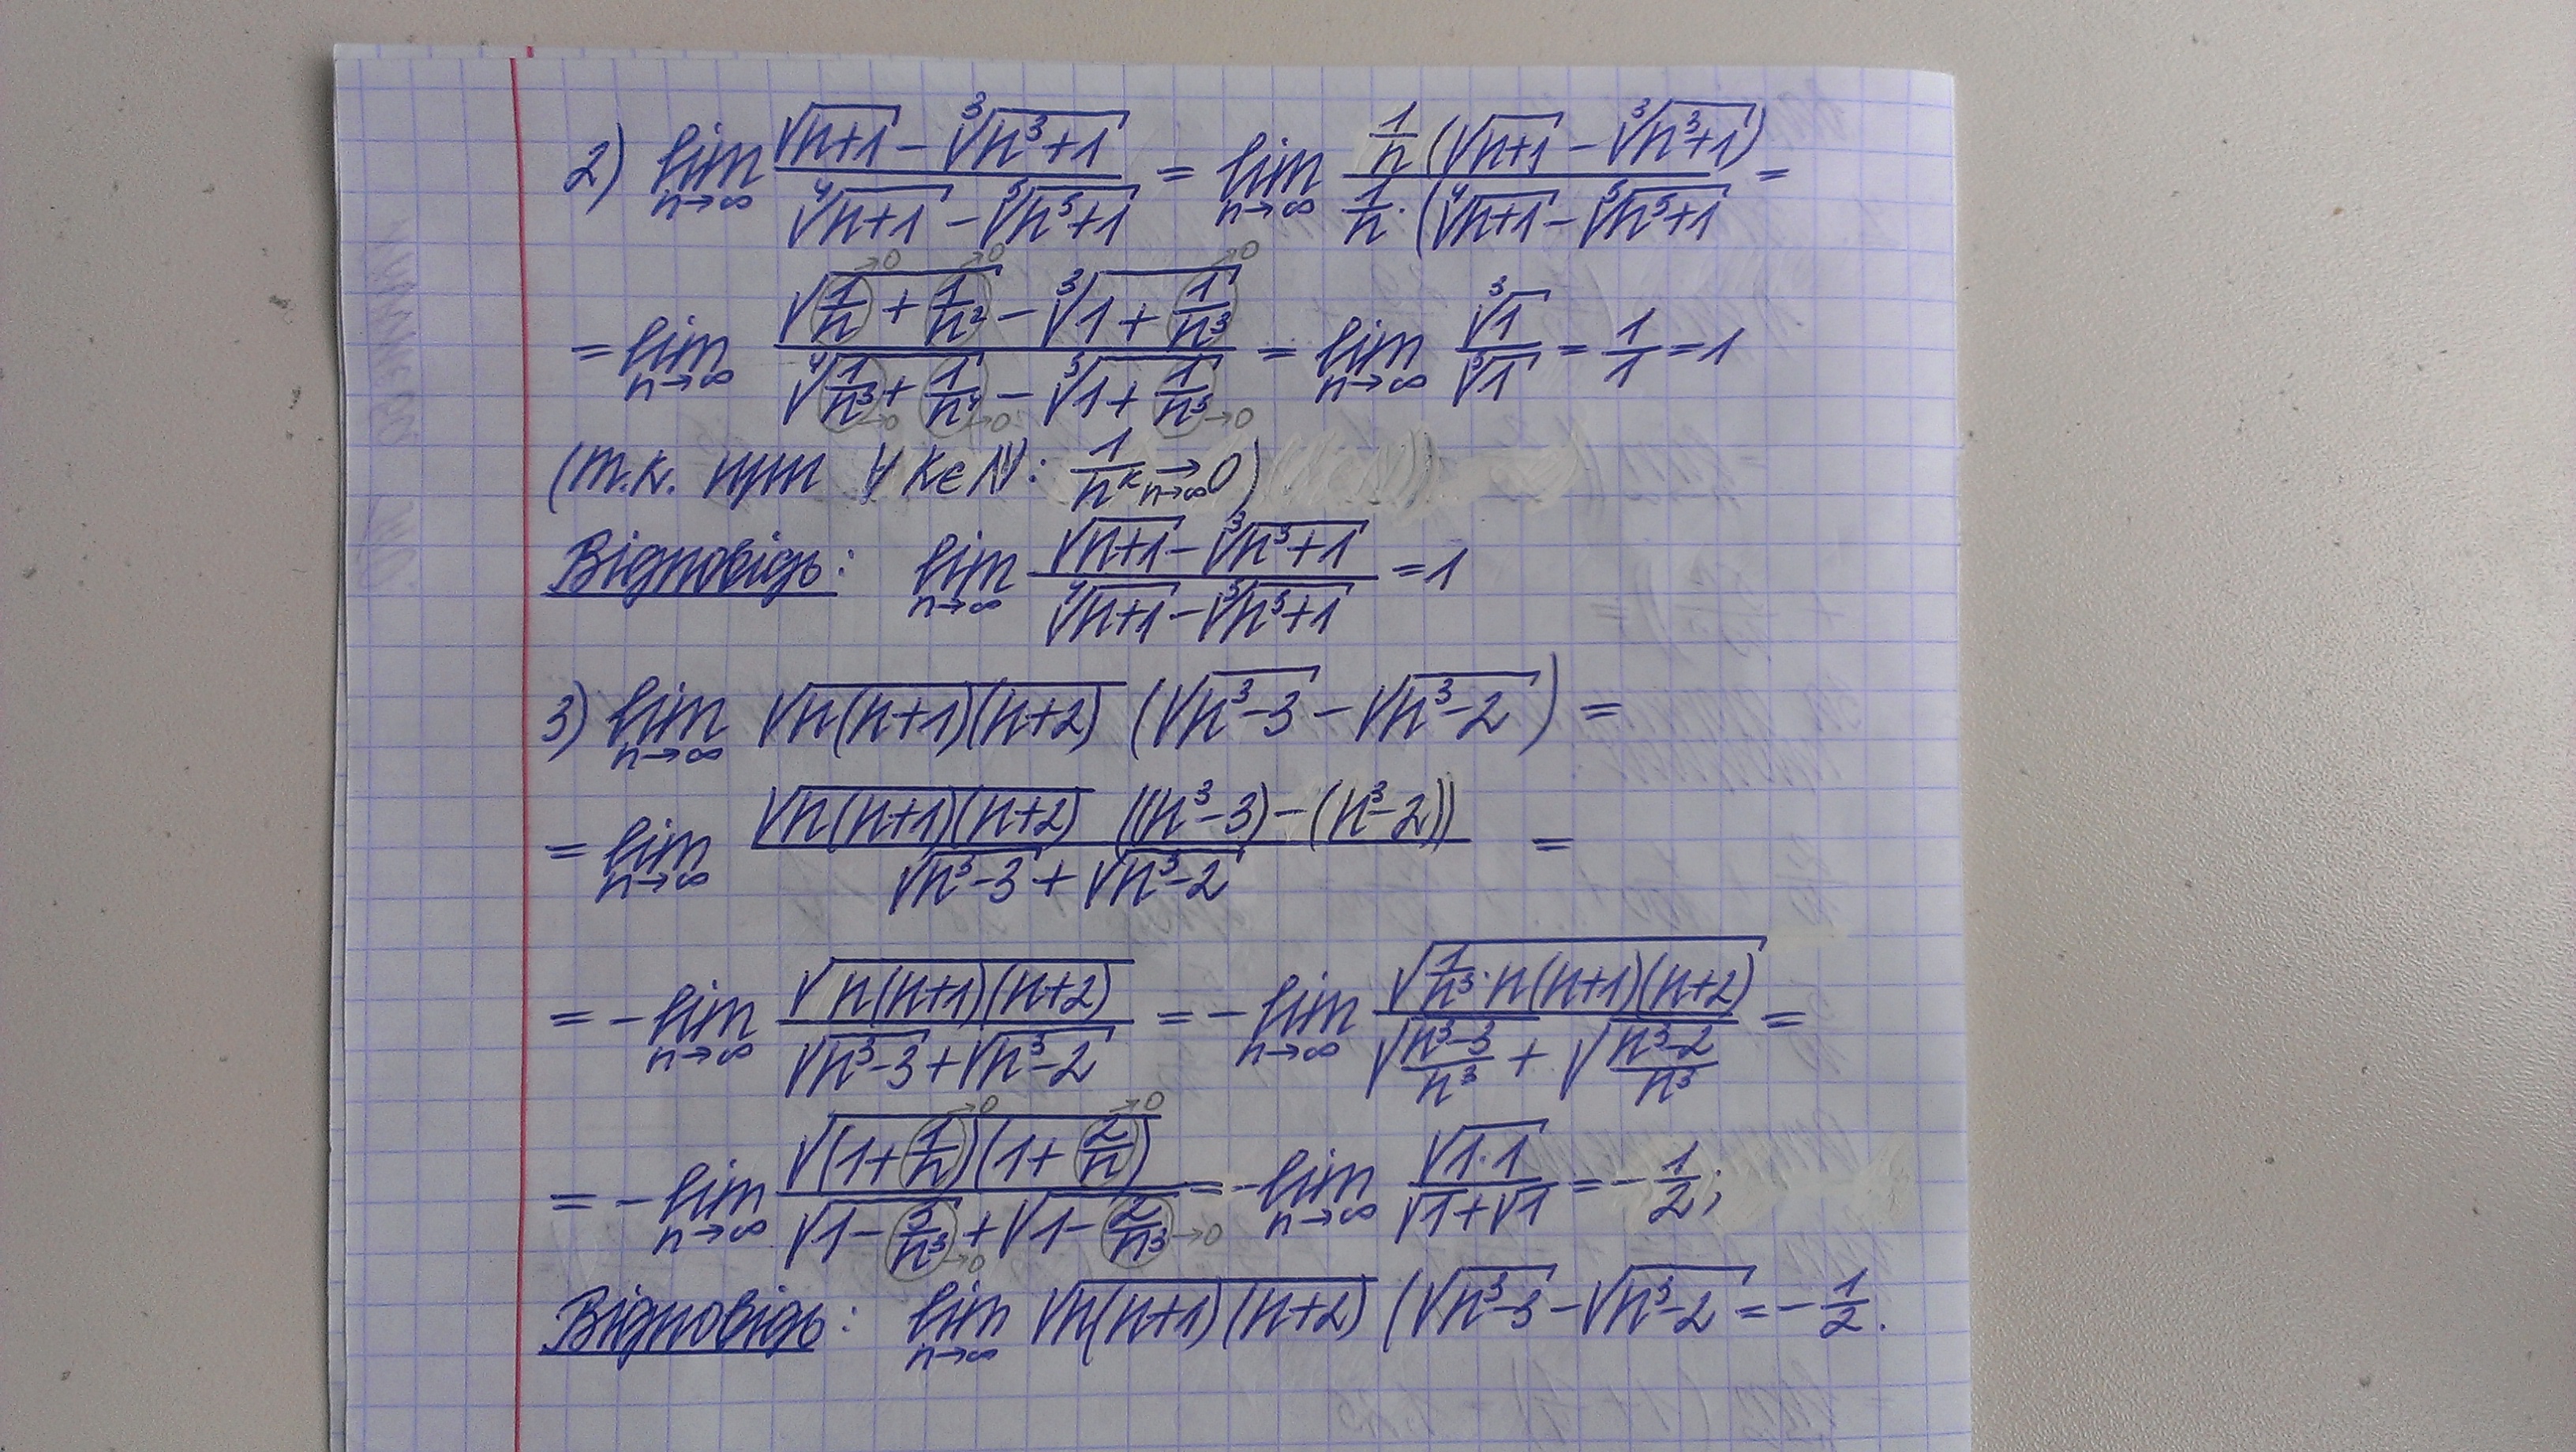 2) lim n→∞ (√(n+1) − ∛(n³+1)) / (∜(n+1) − ⁵√(n⁵+1)) = lim n→∞ (1/n (√(n+1) − ∛(n³+1))) / (1/n · (∜(n+1) − ⁵√(n⁵+1)) =
= lim n→∞ (√(1/n + 1/n²) − ∛(1 + 1/n³)) / (∜(1/n³ + 1/n⁴) − ⁵√(1 + 1/n⁵)) = lim n→∞ ∛1 / ⁵√1 = 1/1 = 1
(т.к. при ∀ k∈N: 1/nᵏ → n→∞ 0)
Відповідь: lim n→∞ (√(n+1) − ∛(n³+1)) / (∜(n+1) − ⁵√(n⁵+1)) = 1
3) lim n→∞ √(n(n+1)(n+2)) (√(n³−3) − √(n³−2)) =
= lim n→∞ (√(n(n+1)(n+2)) ((n³−3)−(n³−2))) / (√(n³−3) + √(n³−2)) =
= − lim n→∞ √(n(n+1)(n+2)) / (√(n³−3) + √(n³−2)) = − lim n→∞ √(1/n³ · n(n+1)(n+2)) / (√((n³−3)/n³) + √((n³−2)/n³)) =
= − lim n→∞ √((1+1/n)(1+2/n)) / (√(1−3/n³) + √(1−2/n³)) = − lim n→∞ √(1·1) / (√1+√1) = − 1/2;
Відповідь: lim n→∞ √(n(n+1)(n+2)) (√(n³−3) − √(n³−2) = − 1/2.